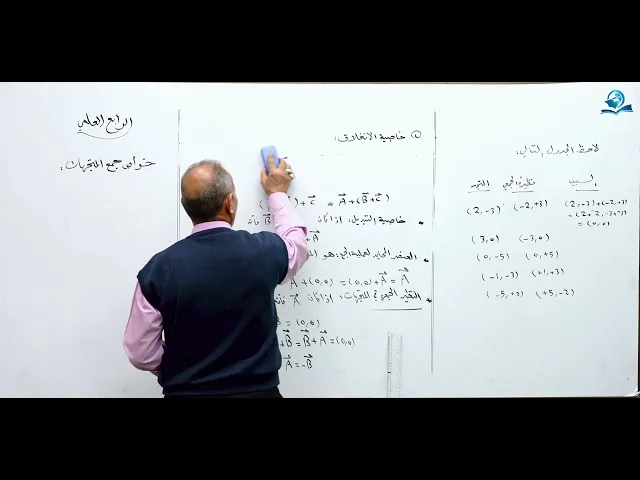 الرابع العلمي
خواص جمع المتجهات:
خاصية الانغلاق:
) + C⃗ = A⃗ + (B⃗ + C⃗)
خاصية التبديل: اذا كان
+ A⃗
العنصر المحايد لعملية الجمع: هو
A + (0,0) = (0,0) + A⃗ = A⃗
النظير الجمعي للمتجهات: اذا كان A⃗ فأن
= (0,0)
+ B⃗ = B⃗ + A⃗ = (0,0)
A⃗ = -B⃗
لاحظ الجدول التالي:
المتجه نظيره الجمعي السبب
(2,-3) (-2,+3) (2,-3)+(-2,+3)
=(2+2,-3+-3)
= (0,0)
(3,0) (-3,0)
(0,-5) (0,+5)
(-1,-3) (+1,+3)
(-5,+2) (+5,-2)